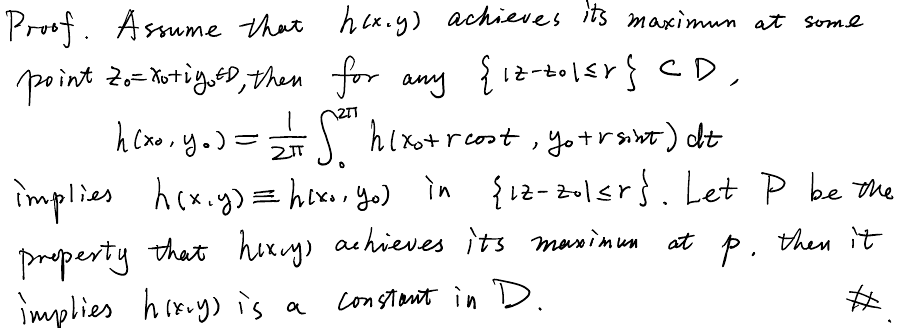 Proof. Assume that h(x,y) achieves its maximun at some
point z₀=x₀+iy₀∈D, then for any {|z-z₀|≤r} ⊂ D,
h(x₀,y₀) = 1/2π ∫₀^2π h(x₀+r cost, y₀+r sint) dt
implies h(x,y) ≡ h(x₀,y₀) in {|z-z₀|≤r}. Let P be the
property that h(x,y) achieves its maximun at p. then it
implies h(x,y) is a constant in D. #.